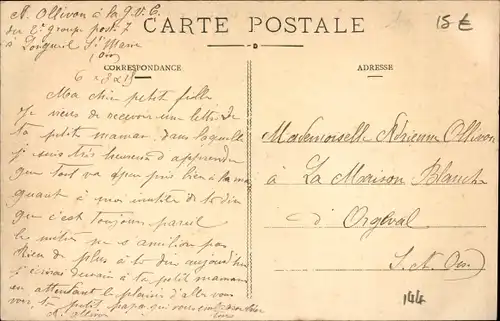 A. Ollivon à la G.V.C.
du 2e groupe poste 7
à Longueil Ste Marie
(Oise)
CARTE POSTALE
15 €
CORRESPONDANCE
ADRESSE
Ma chère petite fille
Je viens de recevoir une lettre de
ta petite maman, dans laquelle
je suis très heureux d'apprendre
que tout va à peu près bien à la maison
quant à moi inutile de te dire
que c'est toujours pareil
le métier ne s'amélion pas
Rien de plus à te dire aujourd'hui
j'écrirai demain à ta petite maman
en attendant le plaisir d'aller vous
voir, ton petit papa qui vous
A. Ollivon
Mademoiselle Adrienne Ollivon
à La Maison Blanche
d'Orgeval
S. et Oise)
144